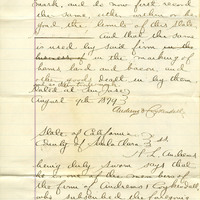 mark, and do now first record
the same, either within or be-
yond the limits of this State,
, and that the same
is used by said firm in the
business of in the marking of
hams, lard and bacon, and
other goods dealt in by them
Dated at San José
August 9th 1894
Andrews & Coykendall
State of California
County of Santa Clara } SS
A. L. Andrews
being duly sworn says that
he is one of the members of
the firm of Andrews & Coykendall,
who subscribed the foregoing